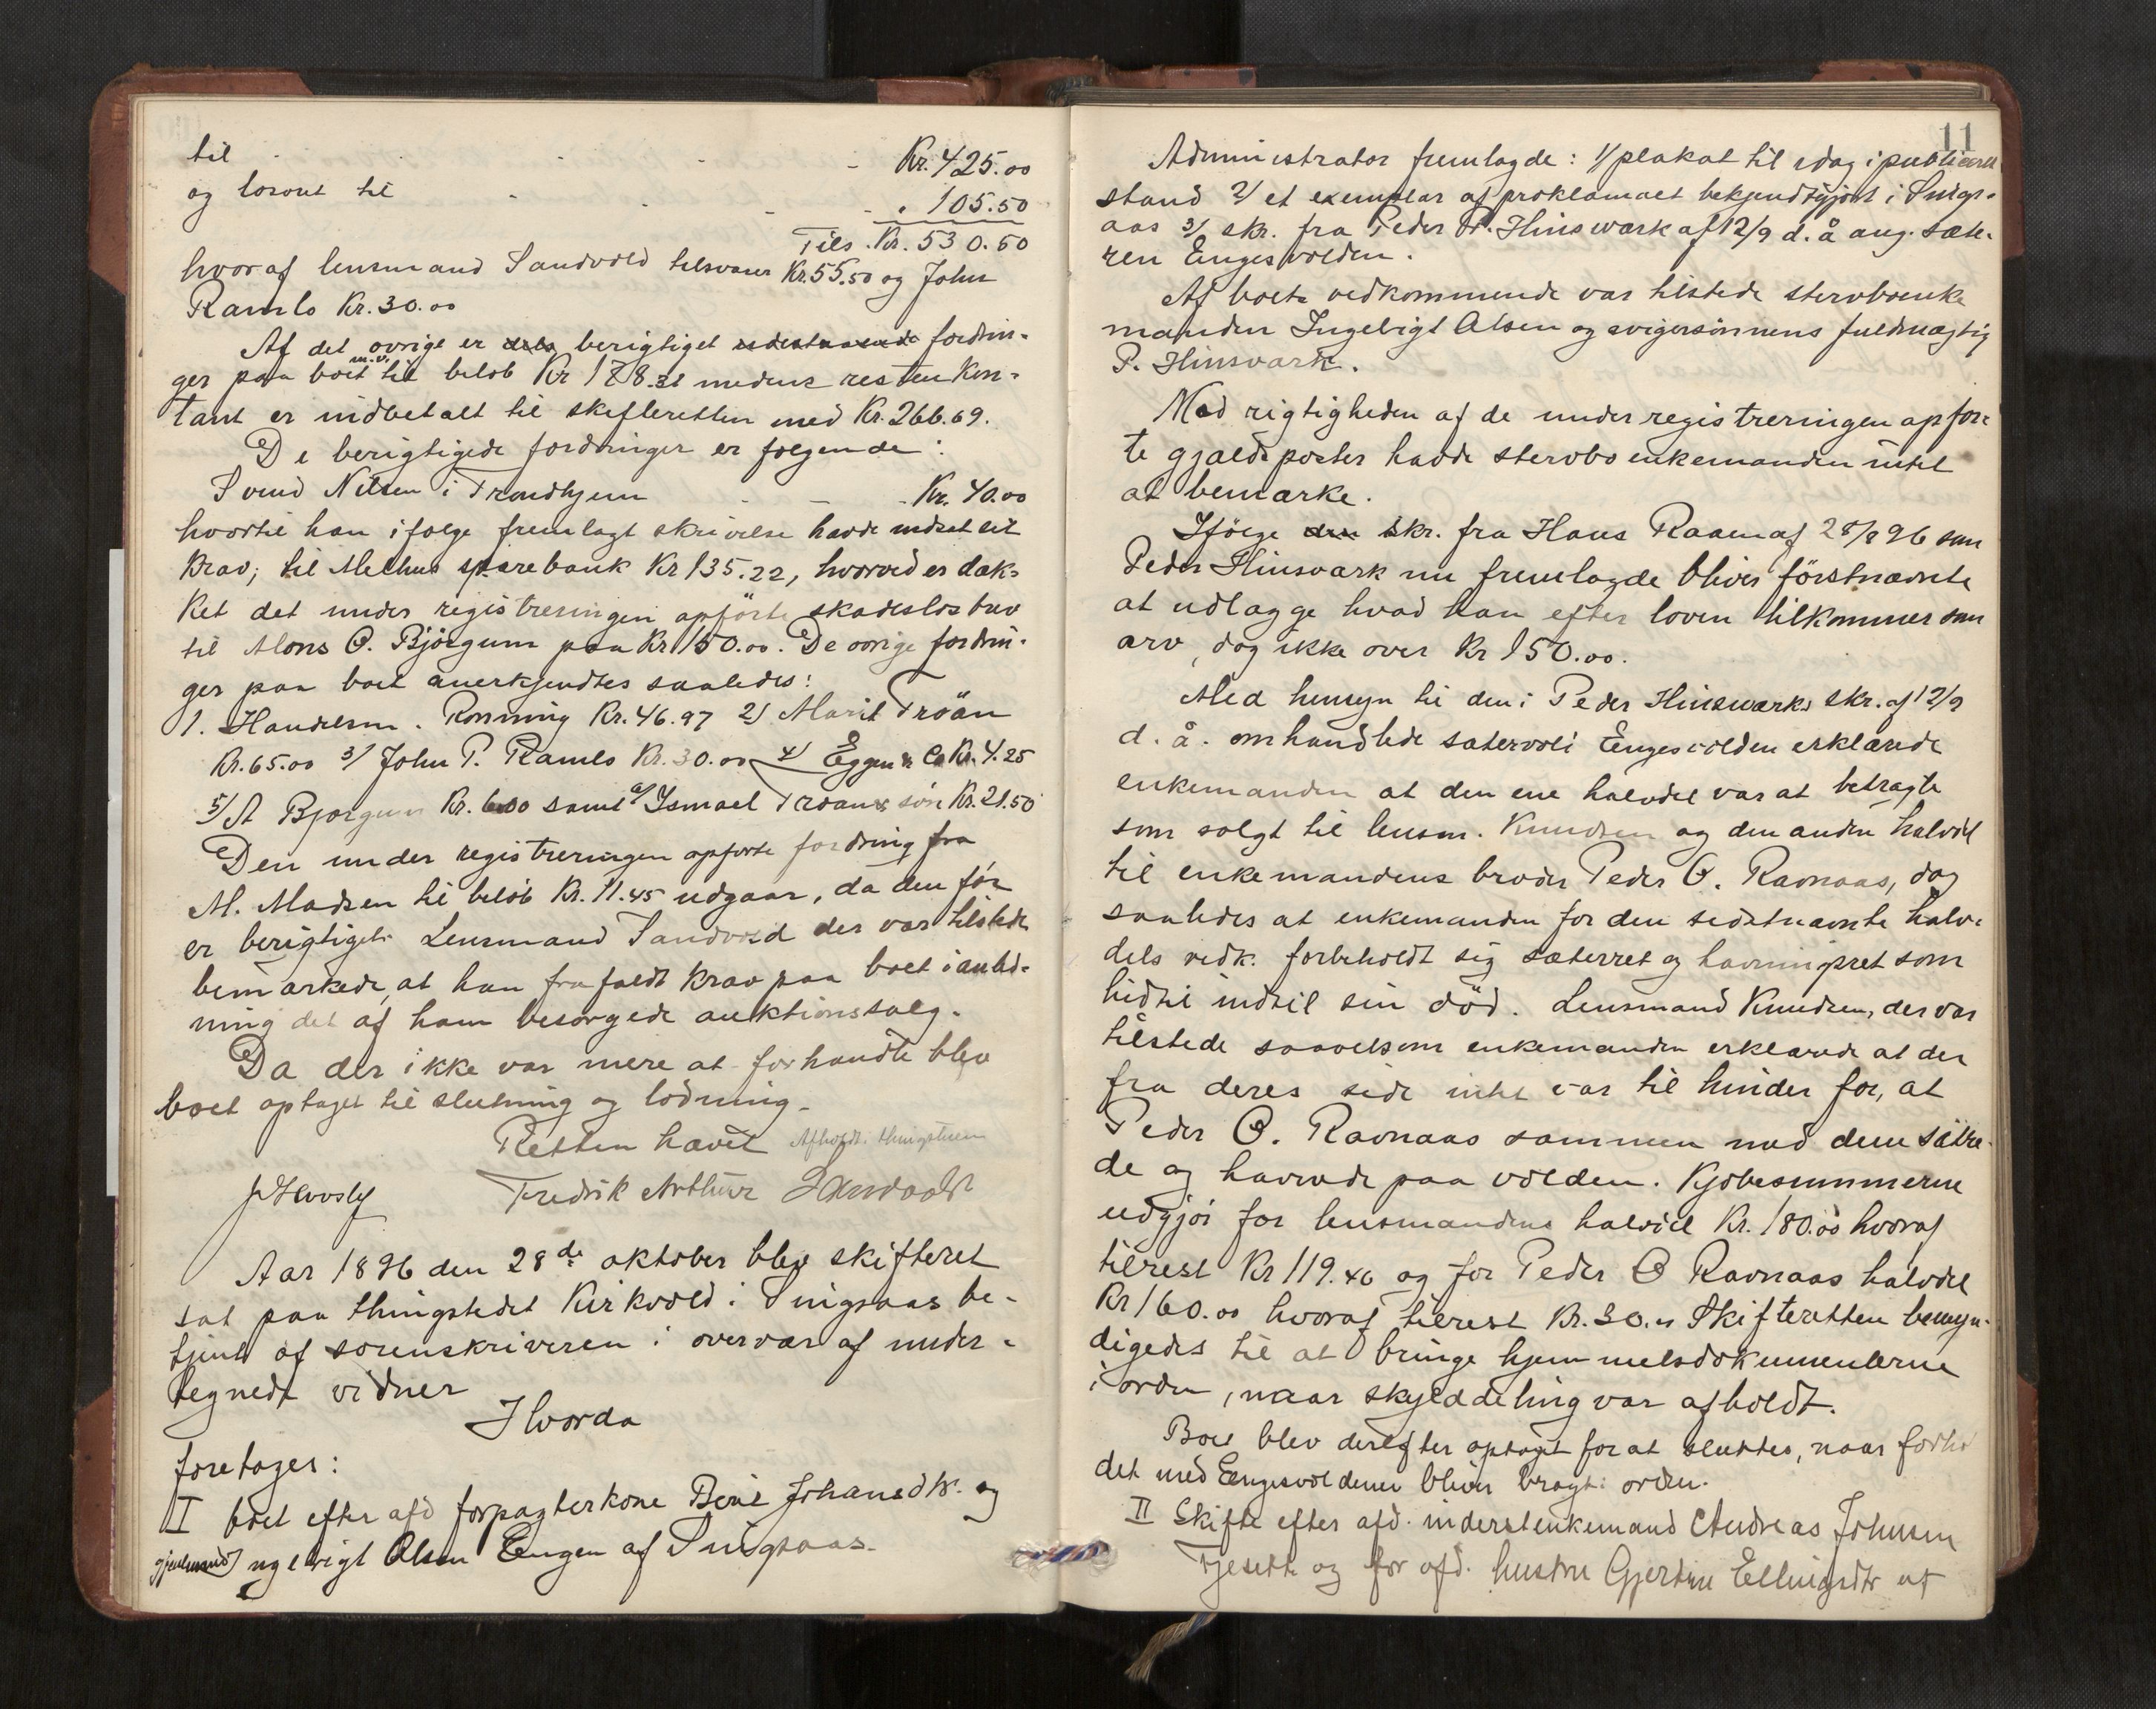 til - - - - Kr. 425.00
og løsøret til - - - - " 105.50
Tils. Kr. 530.50
hvoraf lensmand Sandvold tilsvarer Kr. 55.50 og John
Ramlo Kr. 30.00
Af det øvrige er dels berigtiget udestaaende fordrin-
ger paa boet m.v. til beløb Kr 178.31 medens resten kon-
tant er indbetalt til skifteretten med Kr. 266.69.
De berigtigede fordringer er følgende:
Svend Nilsen i Trondhjem - - Kr. 40.00
hvortil han ifølge fremlagt skrivelse havde nedsat sit
krav; til Melhus sparebank Kr 135.22, hvorved er dæk-
ket det under registreringen opførte skadesløsbrev
til Mons O. Bjørgum paa Kr 150.00. De øvrige fordrin-
ger paa boet anerkjendtes saaledes:
1. Handelsm. Rønning Kr. 46.97 2) Marit Trøån
Kr. 65.00 3/ John P. Ramlo Kr. 30.00 4/ Eggen & Co Kr. 4.25
5/ A Bjørgum Kr. 6.00 samt 6/ Ismael Trøans søn Kr. 21.50
Den under registreringen opførte fordring fra
M. Madsen til beløb Kr. 11.45 udgaar, da den før
er berigtiget. Lensmand Sandvold der var tilstede
bemærkede, at han frafaldt krav paa boet i anled-
ning det af ham besørgede auktionssalg.
Da der ikke var mere at forhandle blev
boet optaget til slutning og lodning.
Retten hævet Afholdt i thingstuen
Fredrik Arthur Sandvold
Aar 1896 den 28de oktober blev skifteret
sat paa thingstedet Kirkvold i Singsaas be-
tjent af sorenskriveren i overvær af under-
tegnede vidner
Hvorda
foretoges:
I boet efter afd forpagterkone Berit Johansdtr. og
gjenlevende Ingebrigt Olsen Engen af Singsaas.
11
Administrator fremlagde: 1/ plakat til idag i publiceret
stand 2/ et exemplar af proklamaet bekjendtgjort i Sings-
aas 3/ skr. fra Peder P. Hinsværk af 12/9 d. å ang. sæte-
ren Engesvolden.
Af boets vedkommende var tilstede stervboenke
manden Ingebrigt Olsen og svigersønnens fuldmægtig
P. Hinsværk.
Mod rigtigheden af de under registreringen opfør-
te gjældsposter havde stervboenkemanden intet
at bemærke.
Ifölge den skr. fra Hans Raaen af 28/8 96 som
Peder Hinsværk nu fremlagde bliver förstnævnte
at udlægge hvad han efter loven tilkommer som
arv, dog ikke over Kr 150.00.
Med hensyn til den i Peder Hinsværks skr. af 12/9
d. å. omhandlede sætervold Engesvolden erklærede
enkemanden at den ene halvdel var at betragte
som solgt til lensm. Knudsen og den anden halvdel
til enkemandens broder Peder O. Ravnaas, dog
saaledes at enkemanden for den sidstnævnte halv-
dels vedk. forbeholdt sig sæterret og havningsret som
hidtil indtil sin död. Lensmand Knudsen, der var
tilstede saavelsom enkemanden erklærede at der
fra deres side intet var til hinder for, at
Peder O. Ravnaas sammen med dem sætre-
de og havnede paa volden. Kjøbesummerne
udgjør for lensmandens halvdel Kr. 180.00 hvoraf
tilrest Kr 119.46 og for Peder O Ravnaas halvdel
Kr 160.00 hvoraf tilrest Kr. 30.00 Skifteretten bemyn-
digedes til at bringe hjemmelsdokumenterne
i orden, naar skylddeling var afholdt.
Boet blev derefter optaget for at sluttes, naar forhol
det med Engesvolden bliver bragt i orden.
II Skifte efter afd. inderstenkemand Andreas Johnsen
og for afd. hustru Gjertine Ellingsdtr af